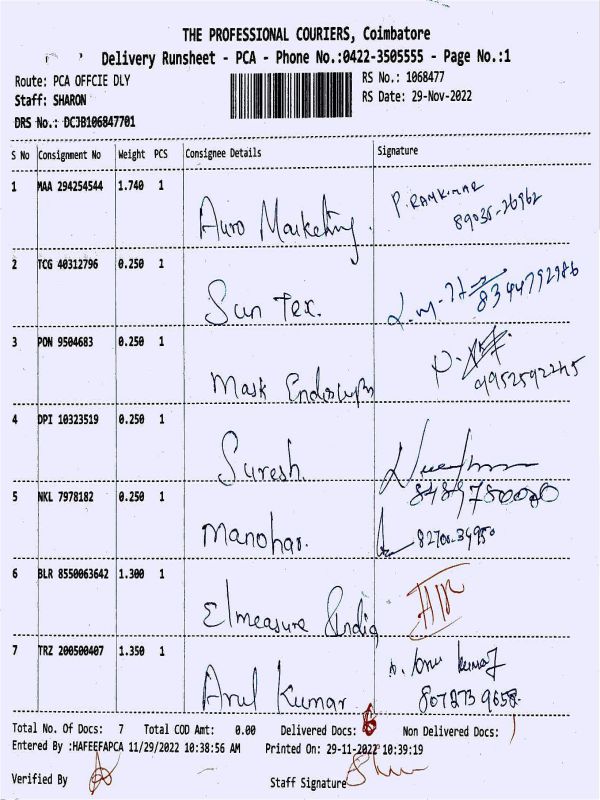 THE PROFESSIONAL COURIERS, Coimbatore
Delivery Runsheet - PCA - Phone No.:0422-3505555 - Page No.:1
Route: PCA OFFCIE DLY RS No.: 1068477
Staff: SHARON RS Date: 29-Nov-2022
DRS No.: DCJB106847701
S No Consignment No Weight PCS Consignee Details Signature
1 MAA 294254544 1.740 1
Auro Marketing. P. RAMKUMAR
89035-26962
2 TCG 40312796 0.250 1
Sun Tex. 8344792986
3 PON 9504683 0.250 1
Mask 9952592245
4 DPI 10323519 0.250 1
Suresh.
5 NKL 7978182 0.250 1 8489780000
Manohar. 82700-34950
6 BLR 8550063642 1.300 1
Elmeasure India
7 TRZ 200500407 1.350 1
Arul Kumar Kumar
Total No. Of Docs: 7 Total COD Amt: 0.00 Delivered Docs: 6 Non Delivered Docs: 1
Entered By :HAFEEFAPCA 11/29/2022 10:38:56 AM Printed On: 29-11-2022 10:39:19
Verified By Staff Signature